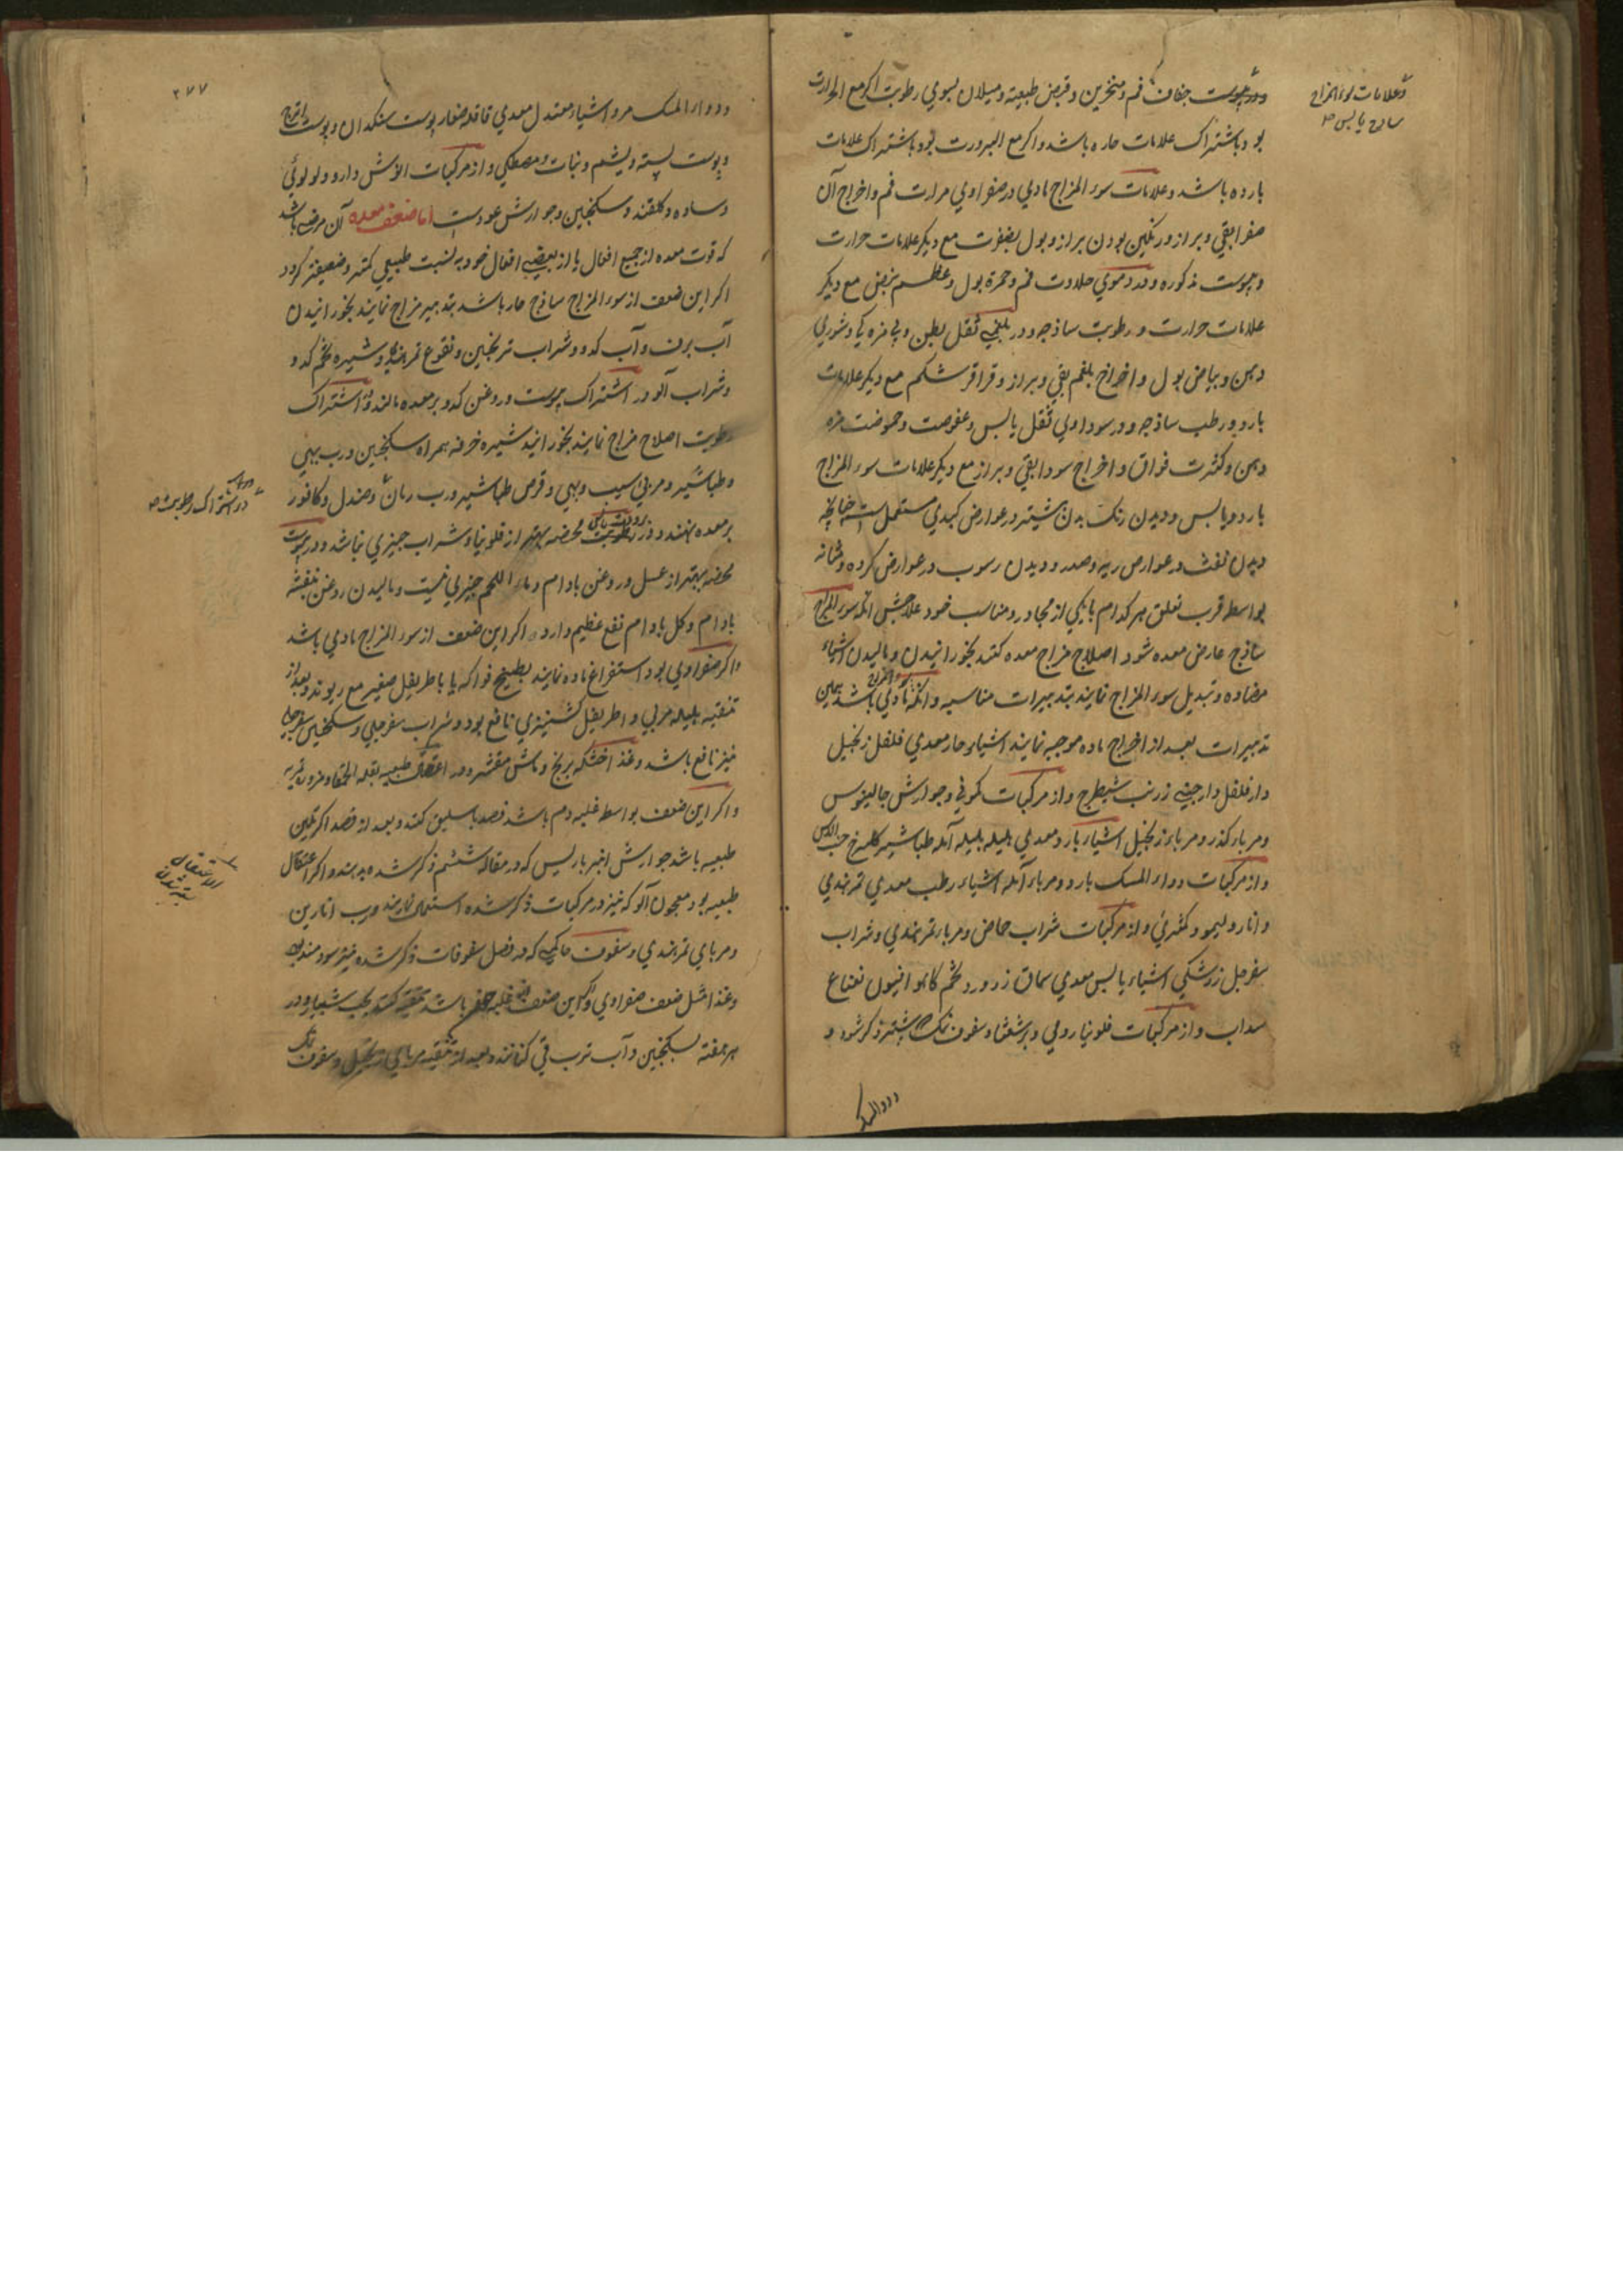 ودر یبوست جفاف فم و منخرین و قبض طبیعة و میلان بسوی رطوبت اکر مع الحرارت
بود باشتراک علامات حاره باشد و اکر مع البرودت بود باشتراک علامات
بارده باشد و علامات سوء المزاج مادی در صفراوی مرارت فم و اخراج آن
صفرا بقی و براز و رنکین بودن براز و بول بصفرت مع دیکر علامات حرارت
و یبوست مذکوره و در دموی حلاوت فم و حمرة بول و عظم نبض مع دیکر
علامات حرارت و رطوبت ساذجه و در بلغمی ثقل بطن و بی مزه کی و شوری
دهن و بیاض بول و اخراج بلغم بقی و براز و قراقر شکم مع دیکر علامات
بارد و رطب ساذجه و در سوداوی ثقل یابس و عفوصت و حموضت مزه
دهن و کثرت فواق و اخراج سودا بقی و براز مع دیکر علامات سوء المزاج
بارد و یابس و دیدن رنک بدن بیشتر در عوارض کبدی مستعمل است چنانچه
دیدن نفث در عوارض ریه و صدر و دیدن رسوب در عوارض کرده و مثانه
بواسطه قرب تعلق هر کدام بایکی از مجاور و مناسب خود علاجش آنکه سوء المزاج
ساذج عارض معده شود اصلاح مزاج معده کنند بخورانیدن و مالیدن اشیاء
مضاده و تبدیل سوء المزاج نمایند بتدبیرات مناسبه و آنکه مادی باشد بهمین
تدبیرات بعد از اخراج ماده موجبه نمایند اشیاء حار معدی فلفل زنجبیل
دارفلفل دارچینی زرنب شیطرج و از مرکبات کمونی و جوارش جالینوس
و مرباء کذر و مرباء زنجبیل اشیاء بارد معدی هلیله بلیله آمله طباشیر کلسرخ حب الآس
و از مرکبات دواء المسک بارد و مرباء آمله اشیاء رطب معدی تمرهندی
و انار و لیمو و کمثری و از مرکبات شراب حماض و مرباء تمرهندی و شراب
سفرجل زرشکی اشیاء یابس معدی سماق زرورد تخم کاهو انیسون نعناع
سداب و از مرکبات فلونیا رومی و برشعثا و سفوف نمک بیشتر ذکر شود و
دواءالمسک
و علامات سوء المزاج
ساذج یابس
۲۷۷
و دواء المسک مر و اشیاء معتدل معدی قاقله صغار پوست سنکدان و پوست اترج
و پوست پسته و یشم و نبات و مصطکی و از مرکبات انوش دارو و لولوئی
و ساده و کلقند و سکنجبین و جوارش عود است اما ضعف معده آن مرض باشد
که قوت معده از جمیع افعال یا از بعضی افعال خود به نسبت طبیعی کمتر و ضعیفتر کردد
اکر این ضعف از سوء المزاج ساذج حار باشد بتدبیر مزاج نمایند بخورانیدن
آب برف و آب کدو و شراب ترنجبین و نقوع تمرهندی و شیره تخم کدو
و شراب آلو در اشتراک یبوست و روغن کدو بر معده مالند و در اشتراک
رطوبت اصلاح مزاج نمایند بخورانید شیره خرفه همراه سکنجبین و رب بهی
و طباشیر و مربی سیب و بهی و قرص طباشیر و رب رمان و صندل و کافور
بر معده نهند و در رطوبت محضه بهتر از فلونیا و شراب چیزی نباشد و در یبوست
محضه بهتر از عسل و روغن بادام و ماء اللحم چیزی نیست و مالیدن روغن بنفشه
بادام و کل بادام نفع عظیم دارد و اکر این ضعف از سوء المزاج مادی باشد
و اکر صفراوی بود استفراغ ماده نمایند بطبیخ فواکه یا باطریفل صغیر مع ریوند و بعد از
تنقیه هلیله مربی و اطریفل کشنیزی نافع بود و شراب سفرجلی و سکنجبین سفرجلی
نیز نافع باشد و غذا خشکه برنج و ماش مقشر و در اعتقال طبیعه بقله الحمقا و مزوره تمریه
و اکر این ضعف بواسطه غلبه دم باشد فصد باسلیق کنند و بعد از فصد اکر تلیین
طبیعه باشد جوارش انبرباریس که در مقاله ششم ذکر شده بدهند و اکر اعتقال
طبیعه بود معجون آلو که نیز در مرکبات ذکر شده استعمال نمایند و رب انارین
و مربای تمرهندی و سفوف حاکمی که در فصل سفوفات ذکر شده نیز سودمند بود
و غذا مثل ضعف صفراوی و اکر این ضعف غلبه باشد تنقیه کنند بحب شبیار و در
هر هفته بسکنجبین و آب ترب قی کنانند و بعد از تنقیه مربای زنجبیل و سفوف نمک
در اشتراک رطوبت
الاعتقال